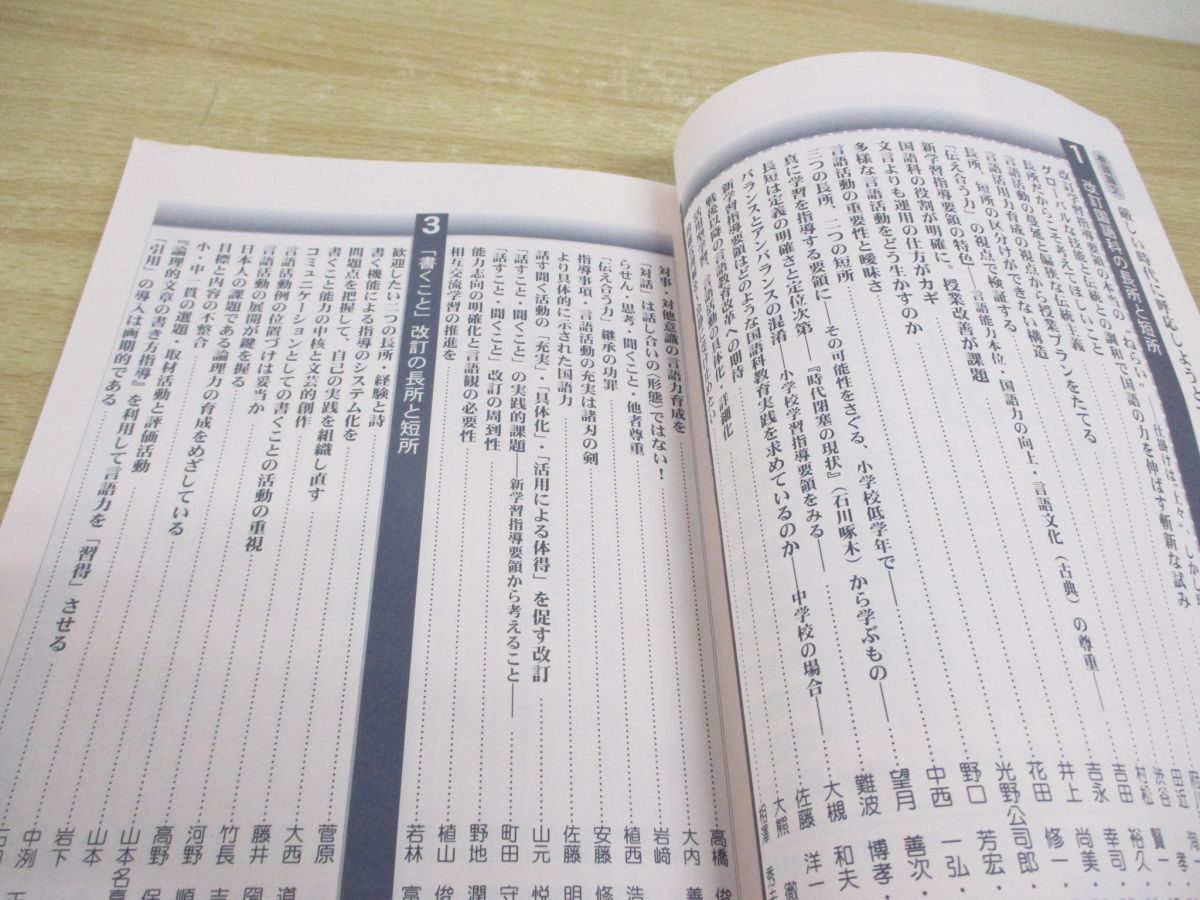 厳しい時代に呼応しよう
1 改訂国語科の長所と短所
改訂学習指導要領の本当の“ねらい”――仕掛けは“上々”、しか
グローバルな技能と伝統との調和で国語の力を伸ばす斬新な試み
長所だからこそ考えてほしいこと
言語活動の蔓延と偏狭な伝統主義
言語活用力育成の視点から授業プランをたてる
長所、短所の区分けができない構造
「伝え合う力」の視点で検証する
新学習指導要領の特色――言語能力本位、国語力の向上・言語文化(古典)の尊重――
国語科の役割が明確に。授業改善が課題
文言よりも運用の仕方がカギ
多様な言語活動をどう生かすのか
言語活動の重要性と曖昧さ
三つの長所、二つの短所
真に学習を指導する要領に――その可能性をさぐる、小学校低学年で――
長短は定義の明確さと定位次第――『時代閉塞の現状』(石川啄木)から学ぶもの――
バランスとアンバランスの混淆――小学校学習指導要領をみる――
新学習指導要領はどのような国語科教育実践を求めているのか――中学校の場合――
戦後以降の言語教育改革への期待
活用型学習、言語活動の具体化・詳細化
田近
渋谷
村松 賢一
吉田 裕久
吉永 幸司
井上 尚美
花田 修一
光野公司郎
野口 芳宏
中西 一弘
望月 善次
難波 博孝
大槻 和夫
佐藤 洋一
大熊 徹
相澤 秀夫
対事・対他意識の言語力育成を
「対話」は話し合いの〈形態〉ではない!
らせん・思考・聞くこと・他者尊重
「伝え合う力」継承の功罪
指導事項・言語活動の充実は諸刃の剣
より具体的に示された国語力
話す聞く活動の「充実」・「具体化」・「活用による体得」を促す改訂
「話すこと・聞くこと」の実践的課題――新学習指導要領から考えること――
「話すこと・聞くこと」改訂の周到性
能力志向の明確化と言語観の必要性
相互交流学習の推進を
高橋 俊
大内 善
岩﨑
植西 浩
安藤 修
佐藤 明
山元 悦
町田 守
野地 潤
植山 俊
若林 富
3 「書くこと」改訂の長所と短所
歓迎したい二つの長所・経験と詩
書く機能による指導のシステム化を
問題点を把握して、自己の実践を組織し直す
書くこと能力の中核と文芸的創作
コミュニケーションとしての書くことの活動の重視
言語活動例の位置づけは妥当か
言語活動の展開が鍵を握る
日本人の課題である論理力の育成をめざしている
目標と内容の不整合
小・中一貫の選題・取材活動と評価活動
『論理的文章の書き方指導』を利用して言語力を「習得」させる
「引用」の導入は画期的である
菅原
大西 道
藤井
竹長 吉
河野 順
高野 保
山本名嘉
山本
岩下
中洌 正